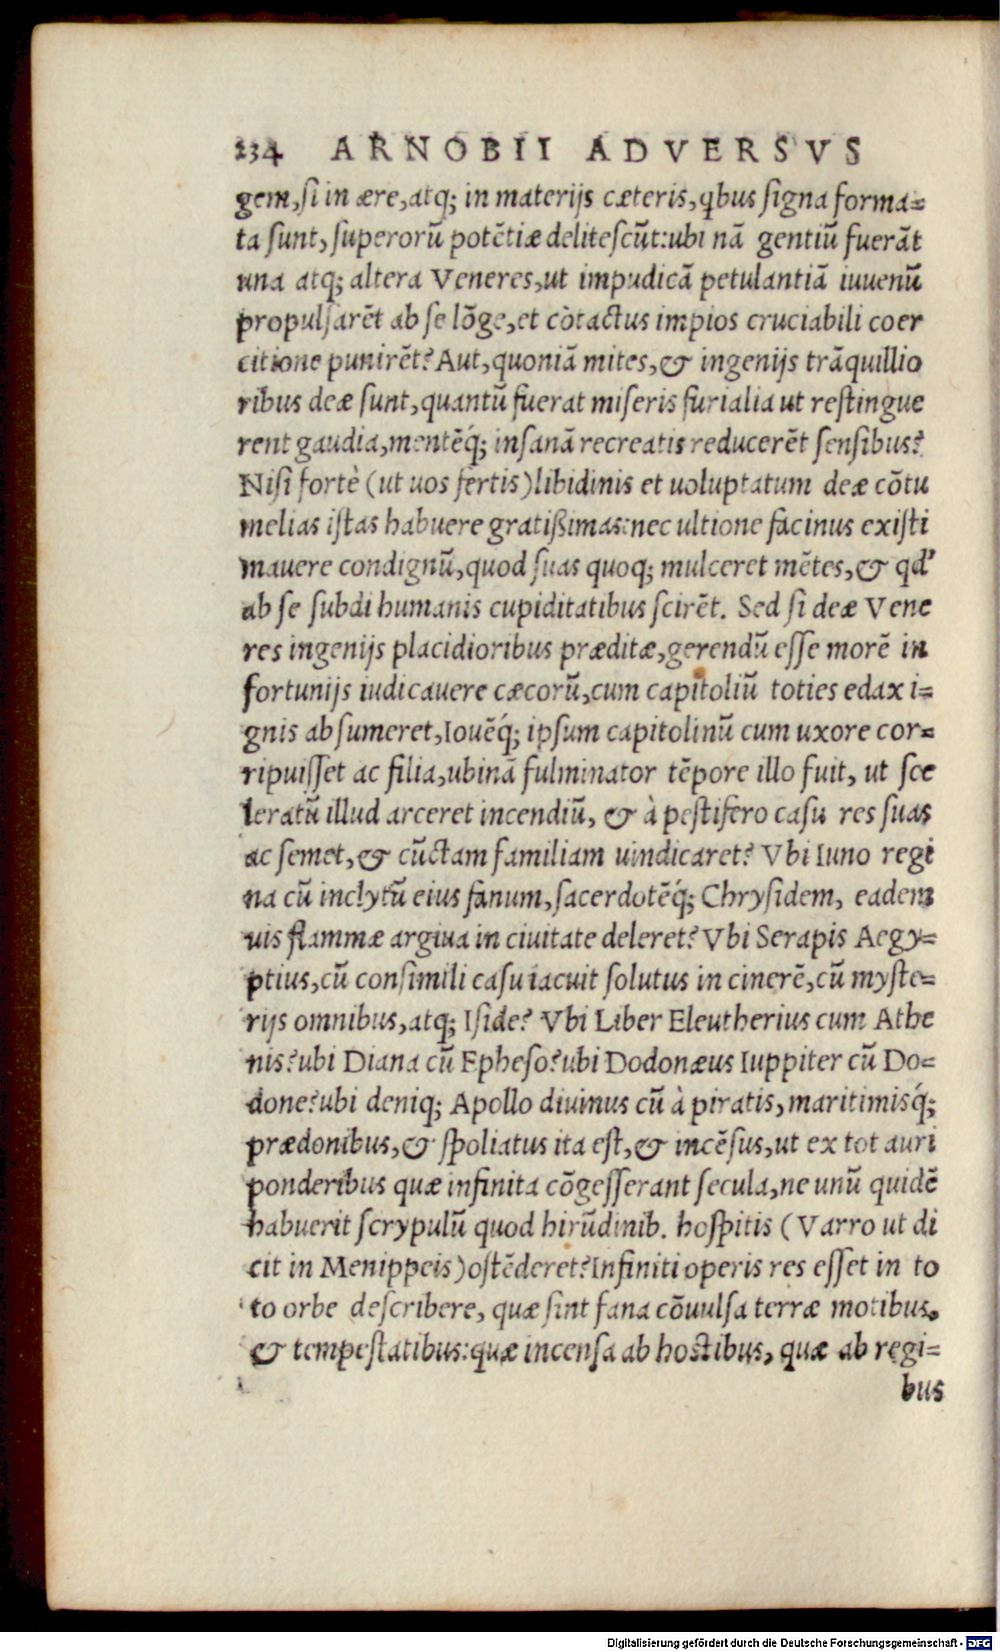 234 ARNOBII ADVERSVS
gem, si in ære, atq; in materijs cæteris, qbus signa forma=
ta sunt, superorū potētiæ delitescūt: ubi nā gentiū fuerāt
una atq; altera Veneres, ut impudicā petulantiā iuvenū
propulsarēt ab se lōge, et còtactus impios cruciabili coer
citione punirēt? Aut, quoniā mites, & ingenijs trāquillio
ribus deæ sunt, quantū fuerat miseris furialia ut restingue
rent gaudia, mentēq́; insanā recreatis reducerēt sensibus?
Nisi fortè (ut uos fertis) libidinis et uoluptatum deæ cōtu
melias istas habuere gratißimas: nec ultione facinus existi
mauere condignū, quod suas quoq; mulceret mētes, & qd'
ab se subdi humanis cupiditatibus scirēt. Sed si deæ Vene
res ingenijs placidioribus præditæ, gerendū esse morē in
fortunijs iudicauere cæcorū, cum capitoliū toties edax i=
gnis absumeret, Iouēq́; ipsum capitolinū cum uxore cor=
ripuisset ac filia, ubinā fulminator tēpore illo fuit, ut sce
leratū illud arceret incendiū, & à pestifero casu res suas
ac semet, & cūctam familiam uindicaret? Vbi Iuno regi
na cū inclytū eius fanum, sacerdotēq́; Chrysidem, eadem
uis flammæ argiua in ciuitate deleret? Vbi Serapis Aegy=
ptius, cū consimili casu iacuit solutus in cinerē, cū myste=
rijs omnibus, atq; Iside? Vbi Liber Eleutherius cum Athe
nis? ubi Diana cū Epheso? ubi Dodonæus Iuppiter cū Do=
done? ubi deniq; Apollo diuinus cū à piratis, maritimisq́;
prædonibus, & spoliatus ita est, & incēsus, ut ex tot auri
ponderibus quæ infinita cōgesserant secula, ne unū quidē
habuerit scrypulū quod hirūdinib. hospitis (Varro ut di
cit in Menippeis) ostēderet? Infiniti operis res esset in to
to orbe describere, quæ sint fana cōuulsa terræ motibus.
& tempestatibus: quæ incensa ab hostibus, quæ ab regi=
bus
Digitalisierung gefördert durch die Deutsche Forschungsgemeinschaft - DFG